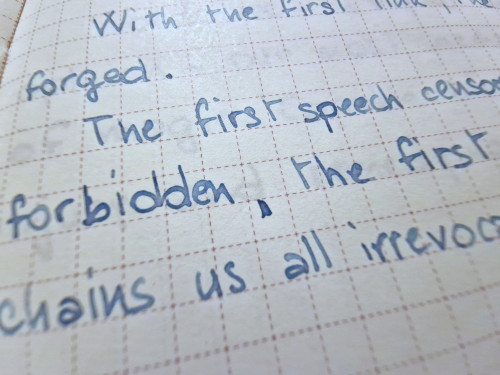 With the first link, the
forged.
The first speech censo
forbidden, the first
chains us all irrevoc